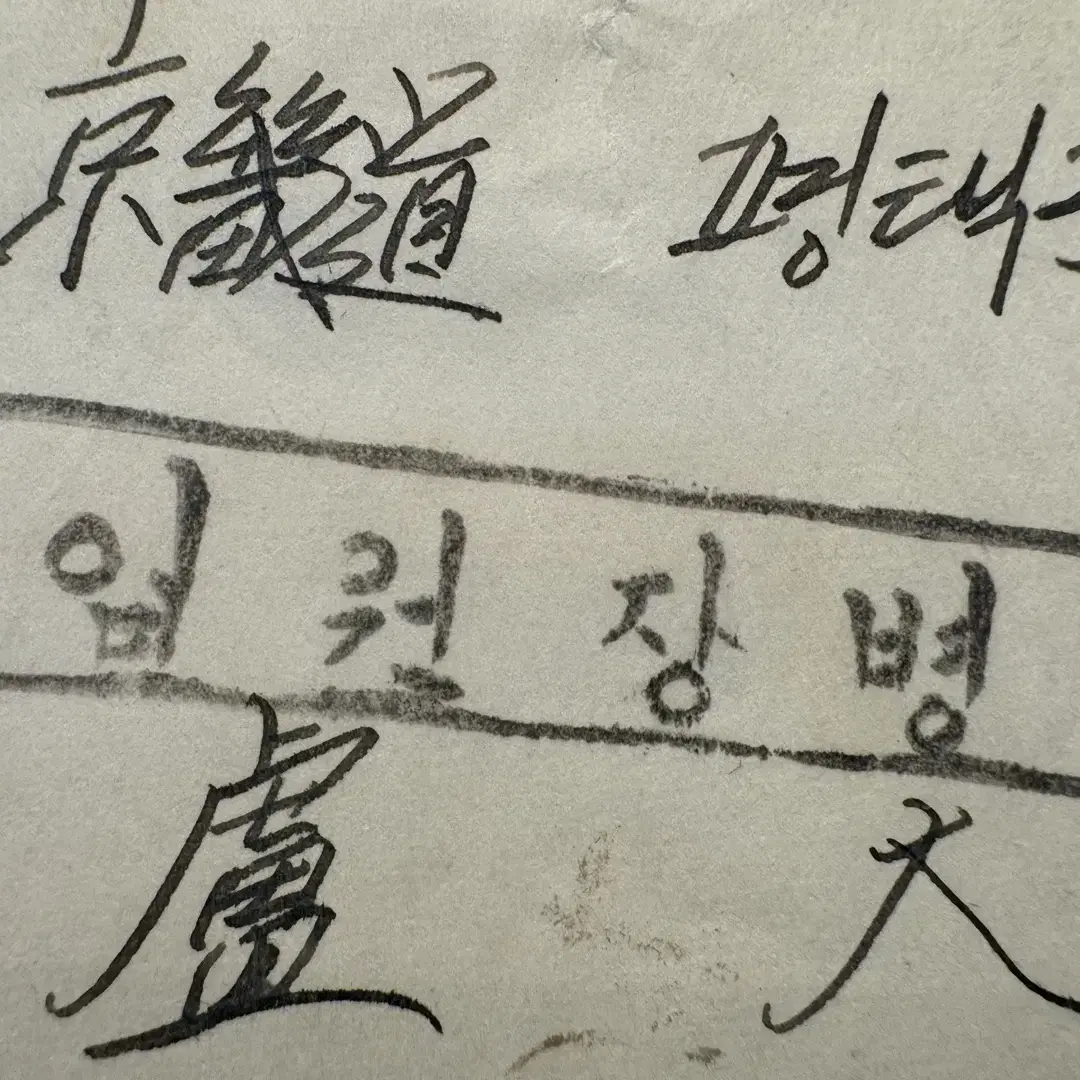 京畿道 평택
입원장병
盧 大